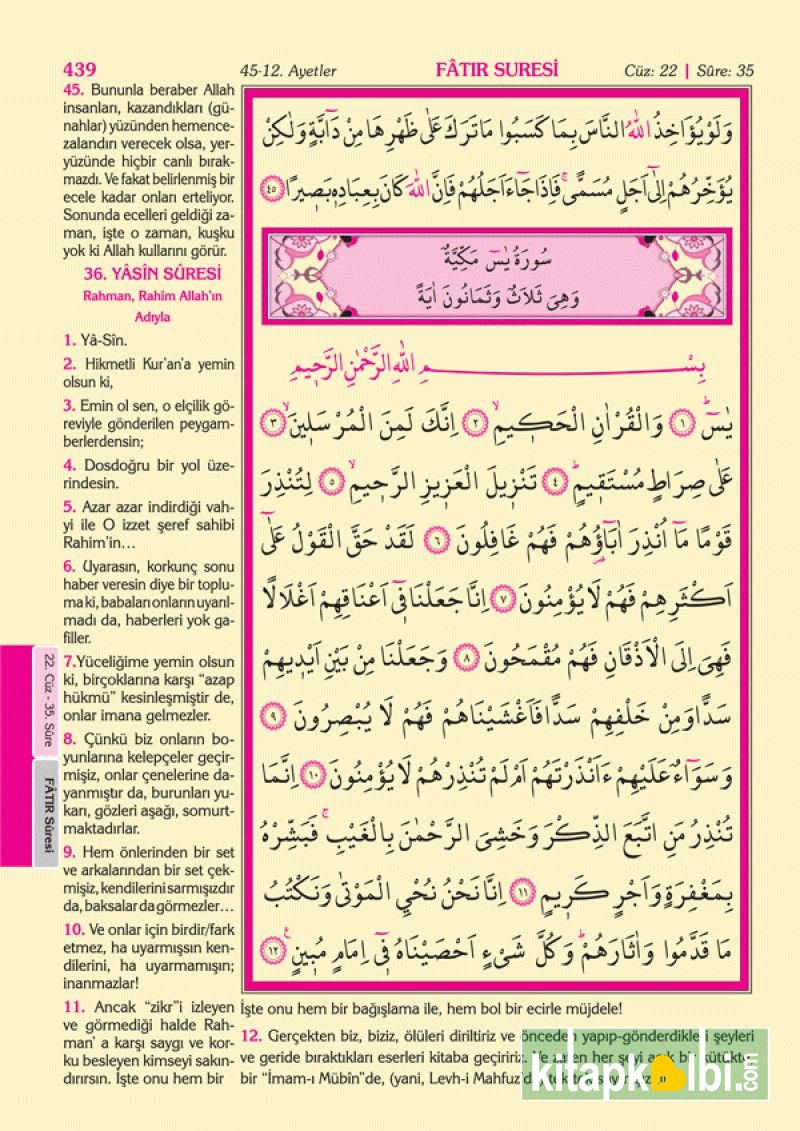 439 45-12. Ayetler FÂTIR SURESİ Cüz: 22 | Sûre: 35
45. Bununla beraber Allah
insanları, kazandıkları (gü-
nahlar) yüzünden hemence-
zalandırı verecek olsa, yer-
yüzünde hiçbir canlı bırak-
mazdı. Ve fakat belirlenmiş bir
ecele kadar onları erteliyor.
Sonunda ecelleri geldiği za-
man, işte o zaman, kuşku
yok ki Allah kullarını görür.
36. YÂSİN SÛRESİ
Rahman, Rahim Allah'ın
Adıyla
1. Yâ-Sîn.
2. Hikmetli Kur'an'a yemin
olsun ki,
3. Emin ol sen, o elçilik gö-
reviyle gönderilen peygam-
berlerdensin;
4. Dosdoğru bir yol üze-
rindesin.
5. Azar azar indirdiği vah-
yi ile O izzet şeref sahibi
Rahim'in...
6. Uyarasın, korkunç sonu
haber veresin diye bir toplu-
ma ki, babaları onların uyarıl-
madı da, haberleri yok ga-
filler.
7.Yüceliğime yemin olsun
ki, birçoklarına karşı "azap
hükmü" kesinleşmiştir de,
onlar imana gelmezler.
8. Çünkü biz onların bo-
yunlarına kelepçeler geçir-
mişiz, onlar çenelerine da-
yanmıştır da, burunları yu-
karı, gözleri aşağı, somurt-
maktadırlar.
9. Hem önlerinden bir set
ve arkalarından bir set çek-
mişiz, kendilerini sarmışızdır
da, baksalar da görmezler...
10. Ve onlar için birdir/fark
etmez, ha uyarmışsın ken-
dilerini, ha uyarmamışın;
inanmazlar!
11. Ancak "zikr"i izleyen
ve görmediği halde Rah-
man' a karşı saygı ve kor-
ku besleyen kimseyi sakın-
dırırsın. İşte onu hem bir
وَلَوْ يُؤَاخِذُ اللّٰهُ النَّاسَ بِمَا كَسَبُوا مَا تَرَكَ عَلٰى ظَهْرِهَا مِنْ دَٓابَّةٍ وَلٰكِنْ
يُؤَخِّرُهُمْ اِلٰٓى اَجَلٍ مُسَمًّىۚ فَاِذَا جَٓاءَ اَجَلُهُمْ فَاِنَّ اللّٰهَ كَانَ بِعِبَادِه۪ بَص۪يرًا ٤٥
سُورَةُ يٰسٓ مَكِّيَّةٌ
وَهِىَ ثَلَاثٌ وَثَمَانُونَ اٰيَةً
بِسْمِ اللّٰهِ الرَّحْمٰنِ الرَّح۪يمِ
يٰسٓۜ ١ وَالْقُرْاٰنِ الْحَك۪يمِۙ ٢ اِنَّكَ لَمِنَ الْمُرْسَل۪ينَۙ ٣
عَلٰى صِرَاطٍ مُسْتَق۪يمٍۜ ٤ تَنْز۪يلَ الْعَز۪يزِ الرَّح۪يمِۙ ٥ لِتُنْذِرَ
قَوْمًا مَٓا اُنْذِرَ اٰبَٓاؤُ۬هُمْ فَهُمْ غَافِلُونَ ٦ لَقَدْ حَقَّ الْقَوْلُ عَلٰٓى
اَكْثَرِهِمْ فَهُمْ لَا يُؤْمِنُونَ ٧ اِنَّا جَعَلْنَا ف۪ٓى اَعْنَاقِهِمْ اَغْلَالًا
فَهِىَ اِلَى الْاَذْقَانِ فَهُمْ مُقْمَحُونَ ٨ وَجَعَلْنَا مِنْ بَيْنِ اَيْد۪يهِمْ
سَدًّا وَمِنْ خَلْفِهِمْ سَدًّا فَاَغْشَيْنَاهُمْ فَهُمْ لَا يُبْصِرُونَ ٩
وَسَوَٓاءٌ عَلَيْهِمْ ءَاَنْذَرْتَهُمْ اَمْ لَمْ تُنْذِرْهُمْ لَا يُؤْمِنُونَ ١٠ اِنَّمَا
تُنْذِرُ مَنِ اتَّبَعَ الذِّكْرَ وَخَشِىَ الرَّحْمٰنَ بِالْغَيْبِۚ فَبَشِّرْهُ
بِمَغْفِرَةٍ وَاَجْرٍ كَر۪يمٍ ١١ اِنَّا نَحْنُ نُحْيِ الْمَوْتٰى وَنَكْتُبُ
مَا قَدَّمُوا وَاٰثَارَهُمْۜ وَكُلَّ شَىْءٍ اَحْصَيْنَاهُ ف۪ٓى اِمَامٍ مُب۪ينٍ ١٢
İşte onu hem bir bağışlama ile, hem bol bir ecirle müjdele!
12. Gerçekten biz, biziz, ölüleri diriltiriz ve önceden yapıp-gönderdikleri şeyleri
ve geride bıraktıkları eserleri kitaba geçiririz. Ve zaten her şeyi açık bir kütükte,
bir "İmam-ı Mübîn"de, (yani, Levh-i Mahfuz'da)
22. Cüz - 35. Sûre
FÂTIR Sûresi
kitapkalbi.com